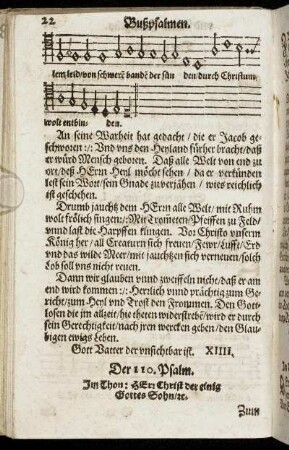 22 Bußpsalmen.
lem leid/von schwerē bandē der sün den durch Christum
wolt entbin⸗ den.
An seine Warheit hat gedacht/ die er Jacob ge⸗
schworen :/: Vnd vns den Heyland fürher bracht/daß
er würd Mensch geboren. Daß alle Welt von end zu
ort/deß HErrn Heyl möcht sehen/ da er verkünden
lest sein Wort/sein Gnade zuverjähen/ wies reichlich
ist geschehen.
Drumb jauchtz dem HErrn alle Welt/ mit Ruhm
wolt frölich singen:/:Mit Trometen/Pfeiffen zu Feld/
vnnd last die Harpffen klingen. Vor Christo vnserm
König her/ all Creaturn sich frewen/Fewr/Lufft/Erd
vnd das wilde Meer/mit jauchtzen sich vernewen/solch
Lob soll vns nicht rewen.
Dann wir glauben vnnd zweiffeln nicht/daß er am
end wird kommen :/: Herrlich vnnd prächtig zum Ge⸗
richt/zum Heyl vnd Trost den Frommen. Den Gott⸗
losen die jm allzeit/hie theten widerstrebē/wird er durch
sein Gerechtigkeit/nach jren wercken geben/den Glau⸗
bigen ewigs Leben.
Gott Vatter der vnsichtbar ist. XIIII.
Der 110. Psalm.
Im Thon: HErr Christ der einig
Gottes Sohn/ꝛc.
Zum